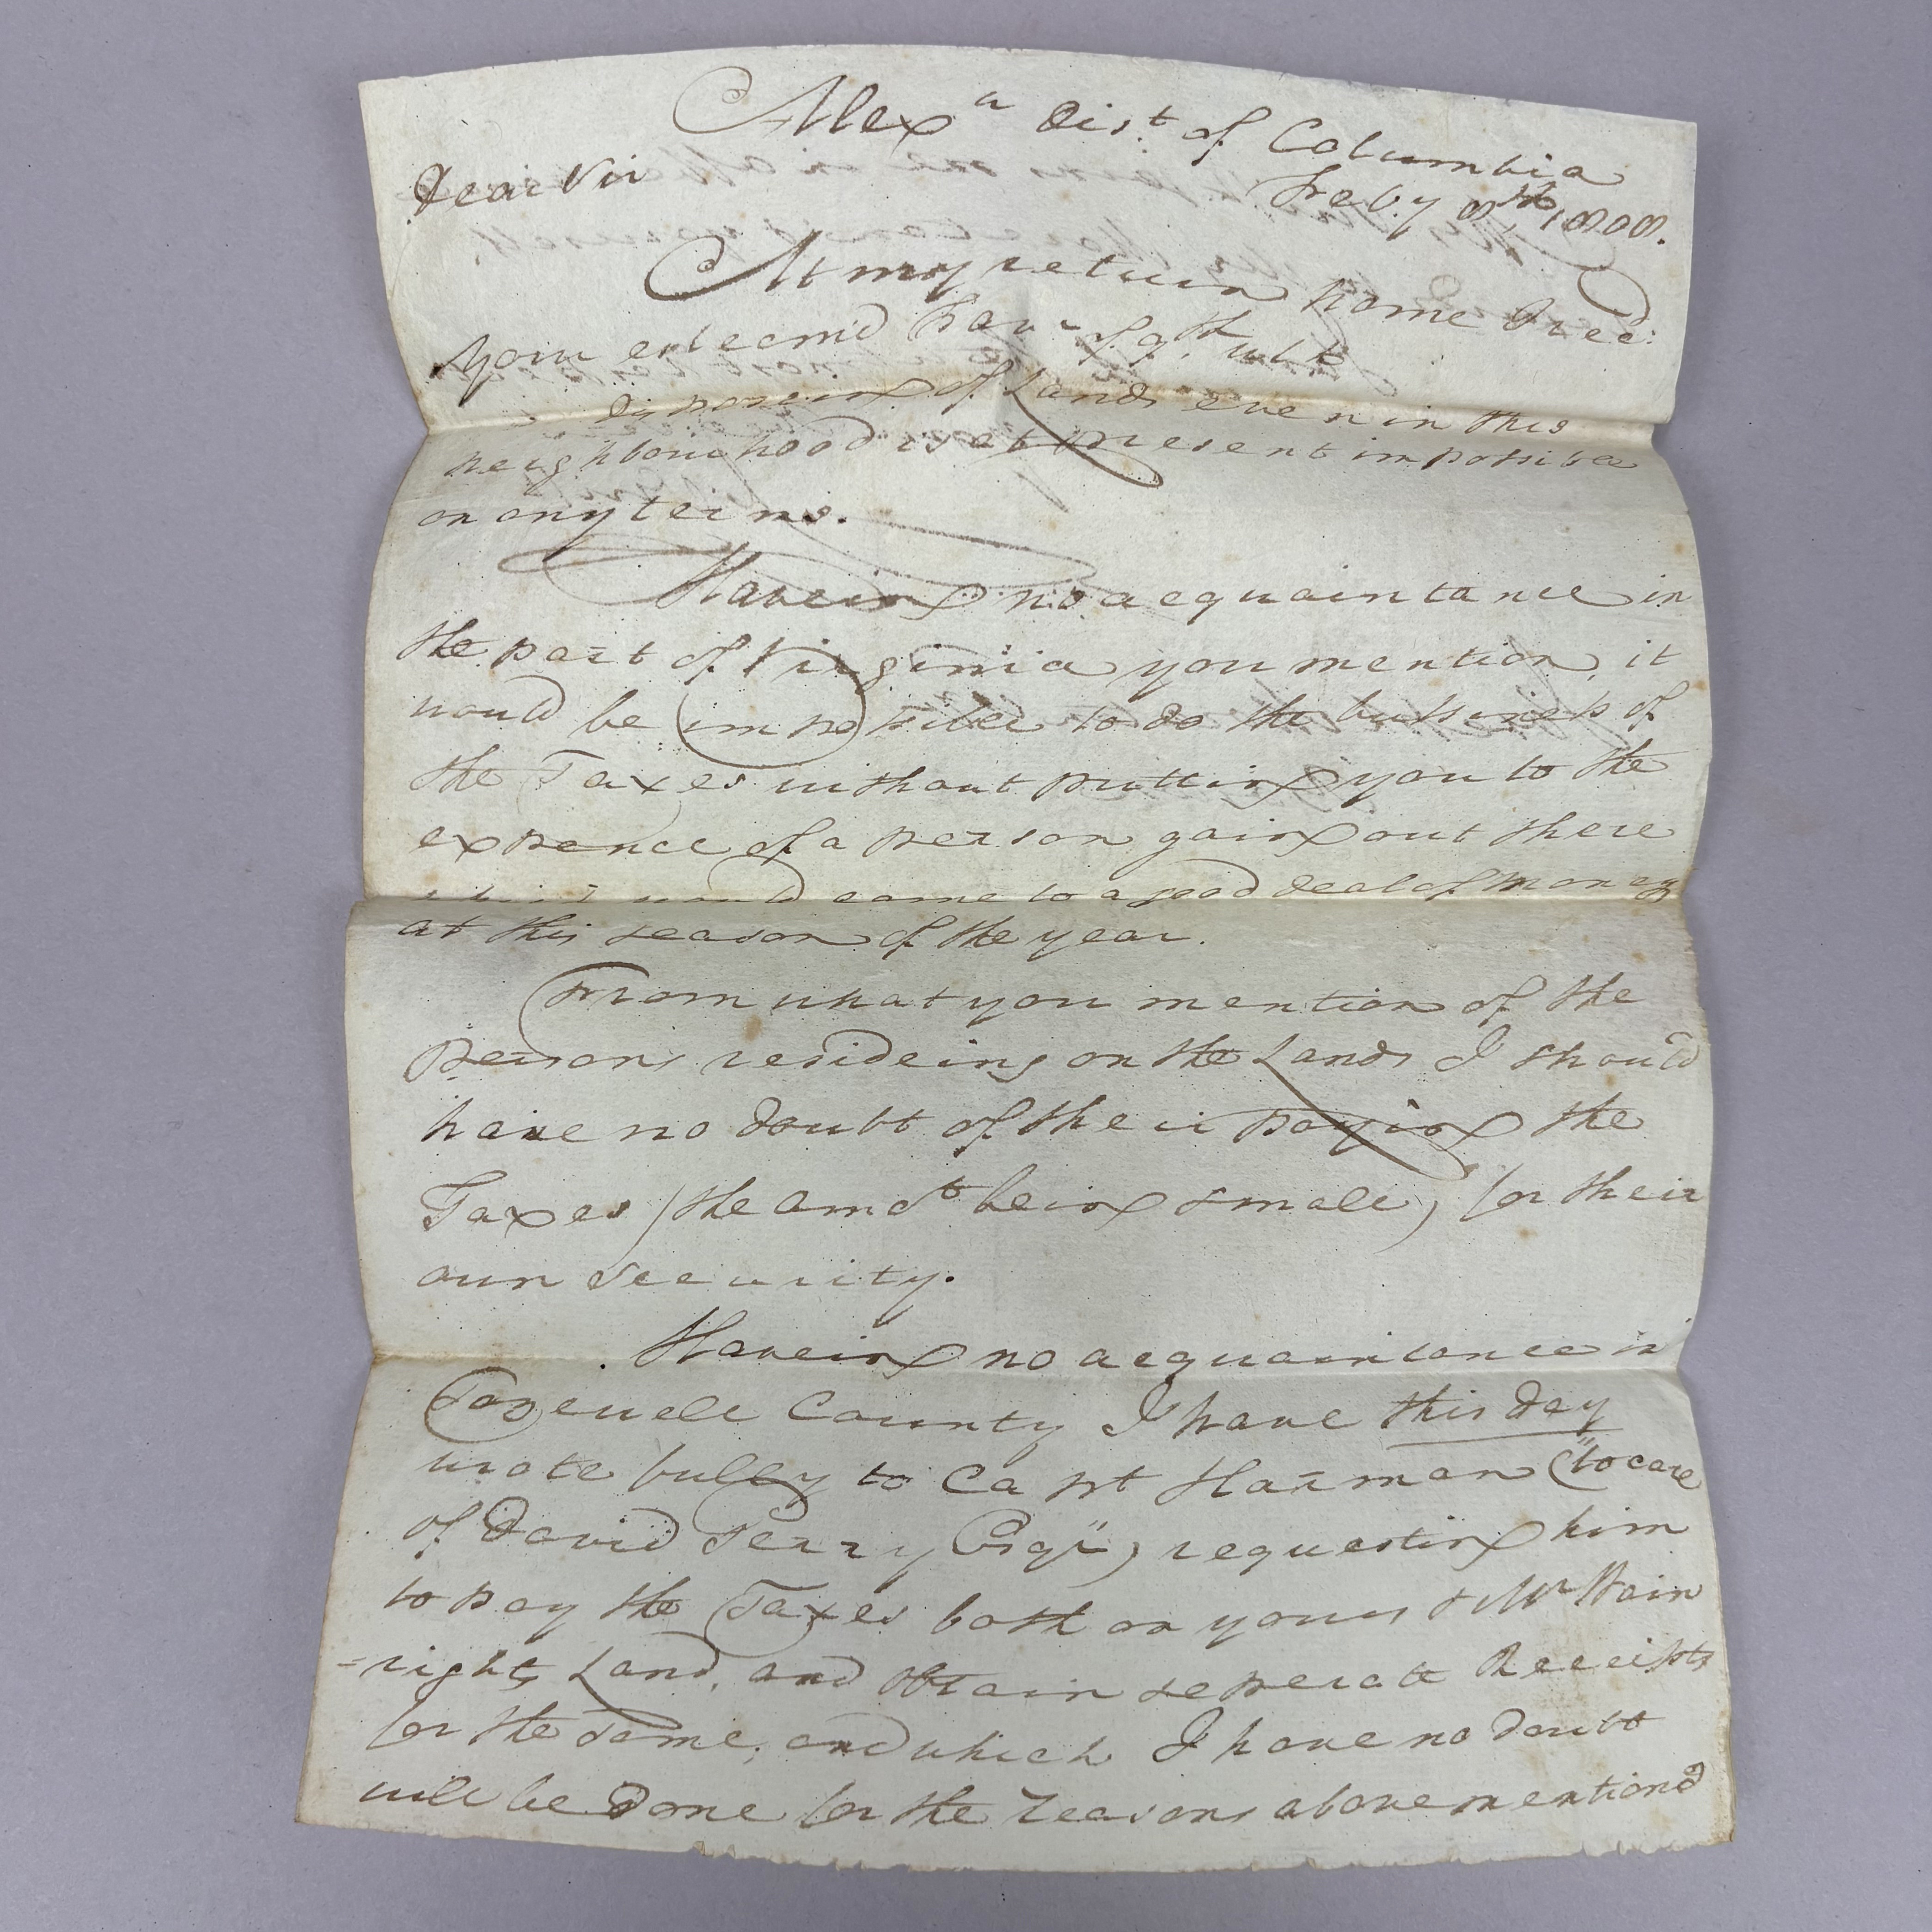 Alexa Dist of Columbia
Dear Sir
Feby 8th 1808.
At my return home I rec:
your esteem'd Favr of 9th ulto
Disposeing of Lands even in this
neighbourhood is at present impossible
on any terms.
Haveing no acquaintance in
the part of Virginia you mention, it
would be impossible to do the bussiness of
the Taxes without putting you to the
expence of a person going out there
would come to a good deal of money
at this season of the year.
From what you mention of the
Persons resideing on the Lands I should
have no doubt of their paying the
Taxes (the amot being small) for their
own security.
Haveing no acquaintance in
Tazewell County I have this day
wrote fully to Capt Harman ("to care
of David Perry Esqr") requesting him
to pay the Taxes both on yours & Mr Wain
=rights Land, and obtain seperate Receipts
for the same, and which I have no doubt
will be done for the reasons above mention'd